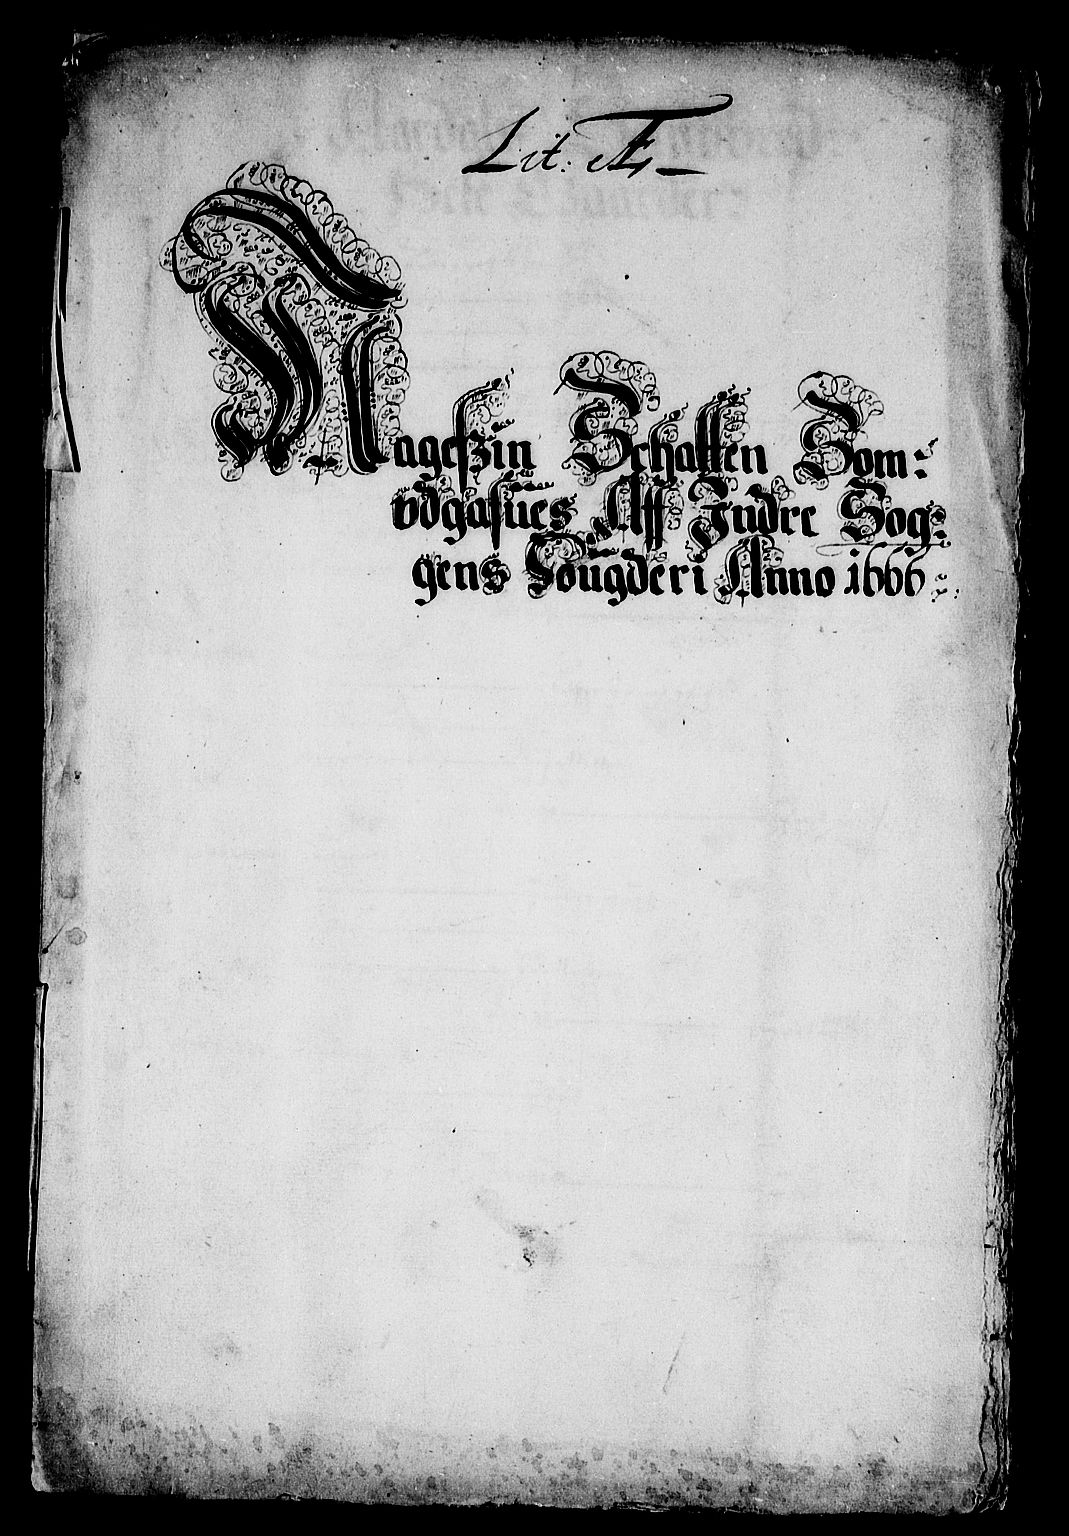 Lit: Æ
Mageszin Schatten Som:
vdgafũes Aff Indre Sog:
gens Fougderi Anno 1666: